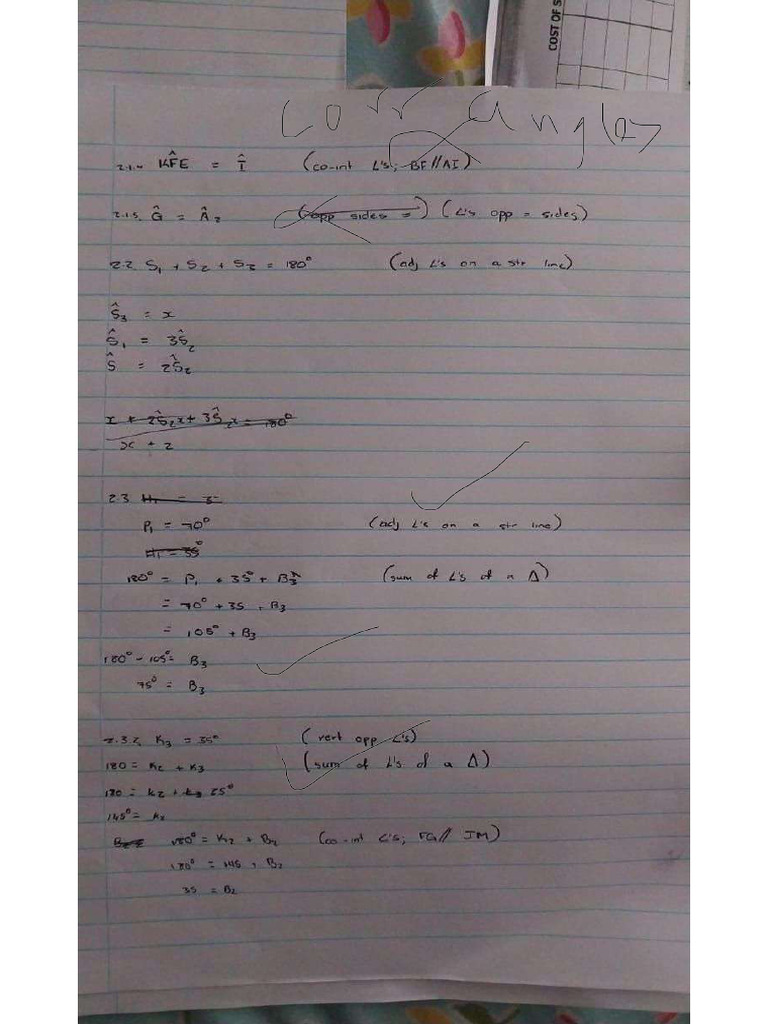 COST OF S
Corr Angles
2.1.4 KF̂E = Î (co-int ∠'s; BF//AI)
2.1.5. Ĝ = Â₂ (opp sides =) (∠'s opp = sides)
2.2. S₁ + S₂ + S₃ = 180° (adj ∠'s on a str line)
Ŝ₃ = x
Ŝ₁ = 3Ŝ₂
Ŝ = 2Ŝ₂
x + 2Ŝ₂x + 3Ŝ₂x = 180°
x + 2
2.3 H₁ = 3
P₁ = 70° (adj ∠'s on a str line)
H₁ = 35°
180° = P₁ + 35° + B̂₃ (sum of ∠'s of a Δ)
= 70° + 35 + B₃
= 105° + B₃
180° - 105° = B₃
75° = B₃
2.3.2. K₃ = 35° (vert opp ∠'s)
180 = K₂ + K₃ (sum of ∠'s of a Δ)
180 = K₂ + K₃ 35°
145° = K₂
B₂ = 180° = K₂ + B₂ (co-int ∠'s; FG// JM)
180° = 145 + B₂
35 = B₂